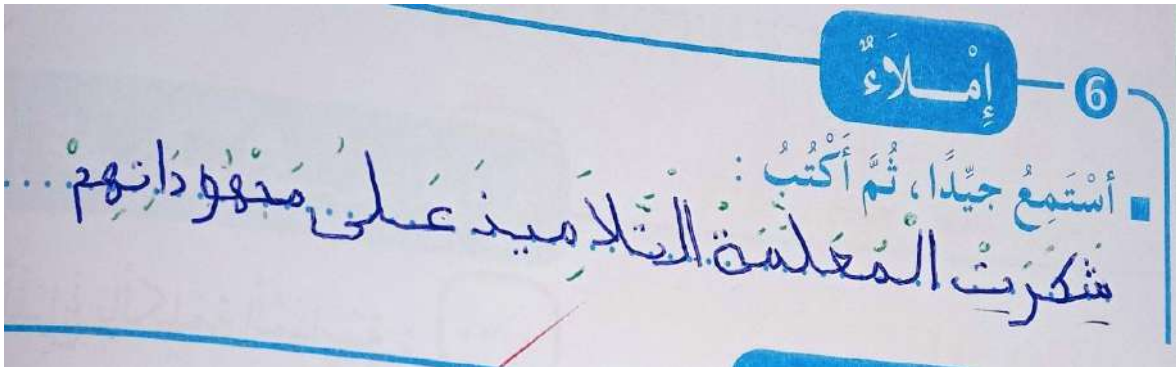 6 إِمْـلَاءٌ
أَسْتَمِعُ جيِّدًا، ثُمَّ أَكْتُبُ :
شكَرَتْ الْمُعَلّمَةُ التَّلاَمِيذَ عَلى مَجْهُودَاتِهِمْ....